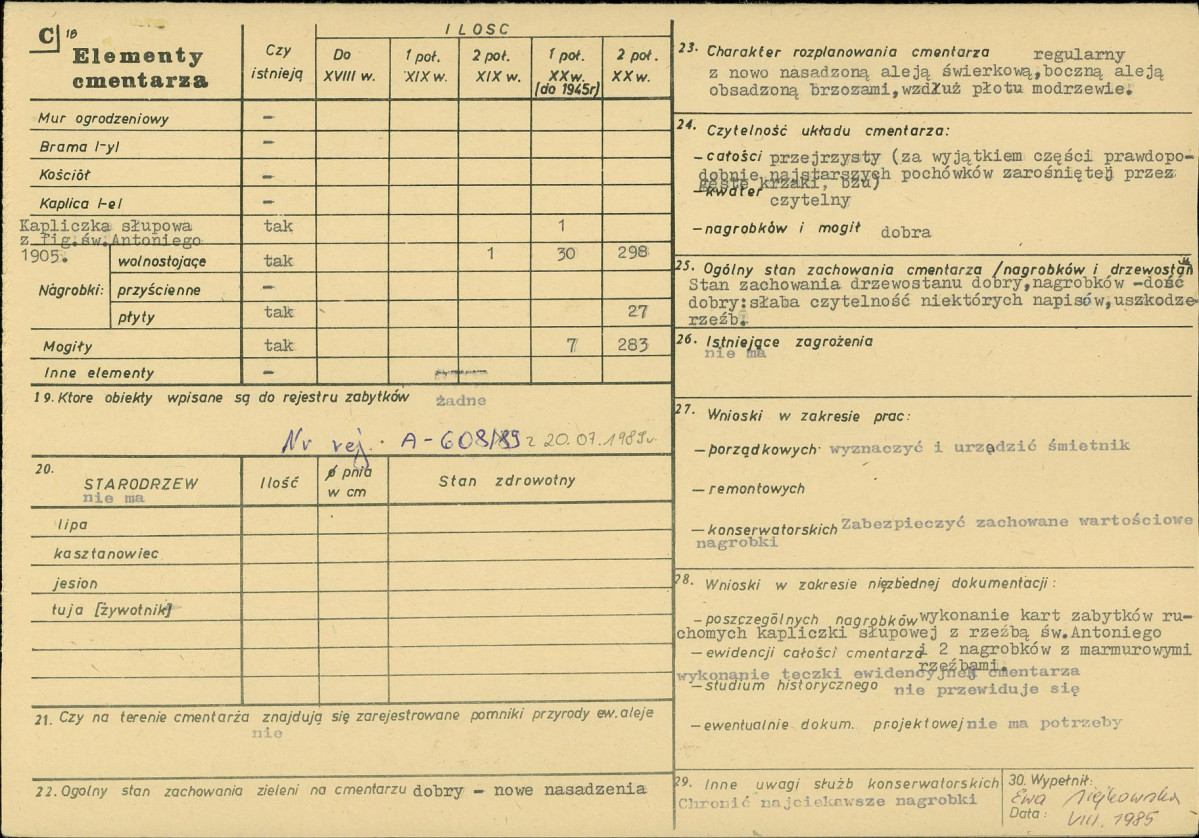 C 18
Elementy cmentarza
Czy istnieją
ILOSC
Do XVIII w.
1 poł. XIX w.
2 poł. XIX w.
1 poł. XX w. (do 1945r)
2 poł. XX w.
Mur ogrodzeniowy –
Brama I-yl –
Kościół –
Kaplica I-el –
Kapliczka słupowa tak 1
z fig.św.Antoniego
1905.
Nagrobki: wolnostojące tak 1 30 298
przyścienne –
płyty tak 27
Mogiły tak 7 283
Inne elementy –
19. Ktore obiekty wpisane są do rejestru zabytków żadne
Nr rej. A-608/89 z 20.07.1989r
20.
STARODRZEW
nie ma
Ilość
ø pnia w cm
Stan zdrowotny
lipa
kasztanowiec
jesion
tuja [żywotnik]
21. Czy na terenie cmentarża znajdują się zarejestrowane pomniki przyrody ew. aleje
nie
22. Ogolny stan zachowania zieleni na cmentarzu dobry – nowe nasadzenia
23. Charakter rozplanowania cmentarza regularny
z nowo nasadzoną aleją świerkową,boczną aleją
obsadzoną brzozami,wzdłuż płotu modrzewie.
24. Czytelność układu cmentarza:
– całości przejrzysty (za wyjątkiem części prawdopo-
dobnie najstarszych pochówków zarośniętej przez
gęste krzaki, bzu)
– kwater czytelny
– nagrobków i mogił dobra
25. Ogólny stan zachowania cmentarza /nagrobków i drzewostanu
Stan zachowania drzewostanu dobry,nagrobków –dość
dobry:słaba czytelność niektórych napisów,uszkodze-
rzeźb.
26. Istniejące zagrożenia
nie ma
27. Wnioski w zakresie prac:
– porządkowych wyznaczyć i urządzić śmietnik
– remontowych
– konserwatorskich Zabezpieczyć zachowane wartościowe
nagrobki
28. Wnioski w zakresie niezbędnej dokumentacji:
– poszczególnych nagrobków wykonanie kart zabytków ru-
chomych kapliczki słupowej z rzeźbą św.Antoniego
– ewidencji całości cmentarza i 2 nagrobków z marmurowymi
rzeźbami.
wykonanie teczki ewidencyjnej cmentarza
– studium historycznego nie przewiduje się
– ewentualnie dokum. projektowej nie ma potrzeby
29. Inne uwagi służb konserwatorskich
Chronić najciekawsze nagrobki
30. Wypełnił:
Ewa
Data: VIII. 1985